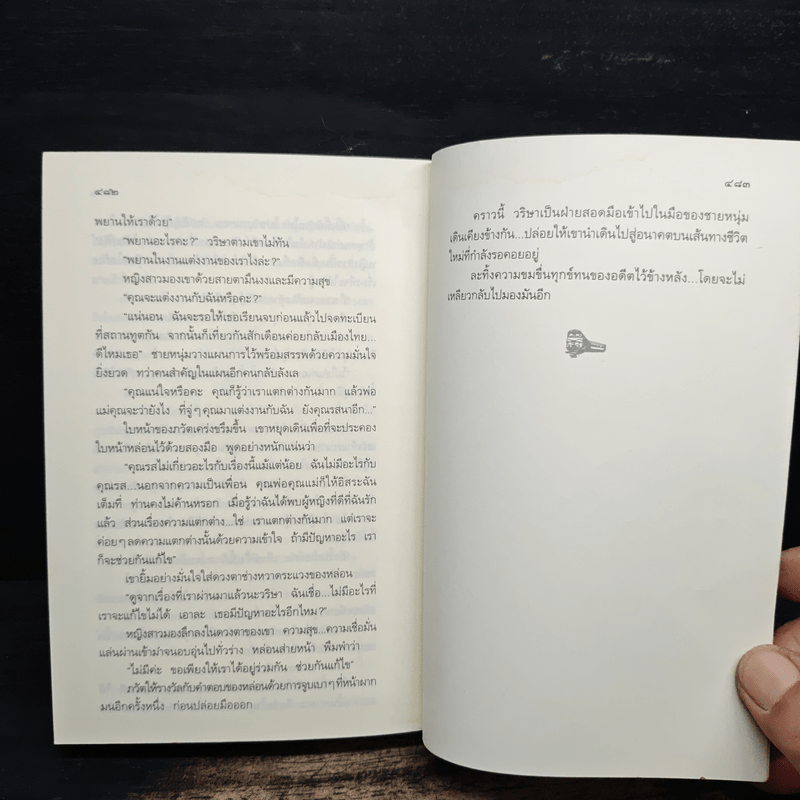 ๔๘๒
พยานให้เราด้วย"
"พยานอะไรคะ?" วริษาตามเขาไม่ทัน
"พยานในงานแต่งงานของเราไงล่ะ?"
หญิงสาวมองเขาด้วยสายตามึนงงและมีความสุข
"คุณจะแต่งงานกับฉันหรือคะ?"
"แน่นอน ฉันจะรอให้เธอเรียนจบก่อนแล้วไปจดทะเบียน
ที่สถานทูตกัน จากนั้นก็เที่ยวกันสักเดือนค่อยกลับเมืองไทย...
ดีไหมเธอ" ชายหนุ่มวางแผนการไว้พร้อมสรรพด้วยความมั่นใจ
ยิ่งยวด ทว่าคนสำคัญในแผนอีกคนกลับลังเล
"คุณแน่ใจหรือคะ คุณก็รู้ว่าเราแตกต่างกันมาก แล้วพ่อ
แม่คุณจะว่ายังไง ที่จู่ๆ คุณมาแต่งงานกับฉัน ยังคุณรสนาอีก..."
ใบหน้าของภวัตเคร่งขรึมขึ้น เขาหยุดเดินเพื่อที่จะประคอง
ใบหน้าหล่อนไว้ด้วยสองมือ พูดอย่างหนักแน่นว่า
"คุณรสไม่เกี่ยวอะไรกับเรื่องนี้แม้แต่น้อย ฉันไม่มีอะไรกับ
คุณรส...นอกจากความเป็นเพื่อน คุณพ่อคุณแม่ก็ให้อิสระฉัน
เต็มที่ ท่านคงไม่ค้านหรอก เมื่อรู้ว่าฉันได้พบผู้หญิงที่ดีที่ฉันรัก
แล้ว ส่วนเรื่องความแตกต่าง...ใช่ เราแตกต่างกันมาก แต่เราจะ
ค่อยๆ ลดความแตกต่างนั้นด้วยความเข้าใจ ถ้ามีปัญหาอะไร เรา
ก็จะช่วยกันแก้ไข"
เขายิ้มอย่างมั่นใจใส่ดวงตาช่างหวาดระแวงของหล่อน
"ดูจากเรื่องที่เราผ่านมาแล้วนะวริษา ฉันเชื่อ...ไม่มีอะไรที่
เราจะแก้ไขไม่ได้ เอาละ เธอมีปัญหาอะไรอีกไหม?"
หญิงสาวมองลึกลงในดวงตาของเขา ความสุข...ความเชื่อมั่น
แล่นผ่านเข้ามาจนอบอุ่นไปทั่วร่าง หล่อนส่ายหน้า พึมพำว่า
"ไม่มีค่ะ ขอเพียงให้เราได้อยู่ร่วมกัน ช่วยกันแก้ไข"
ภวัตให้รางวัลกับคำตอบของหล่อนด้วยการจูบเบาๆ ที่หน้าผาก
มนอีกครั้งหนึ่ง ก่อนปล่อยมือออก
๔๘๓
คราวนี้ วริษาเป็นฝ่ายสอดมือเข้าไปในมือของชายหนุ่ม
เดินเคียงข้างกัน...ปล่อยให้เขานำเดินไปสู่อนาคตบนเส้นทางชีวิต
ใหม่ที่กำลังรอคอยอยู่
ละทิ้งความขมขื่นทุกข์ทนของอดีตไว้ข้างหลัง...โดยจะไม่
เหลียวกลับไปมองมันอีก